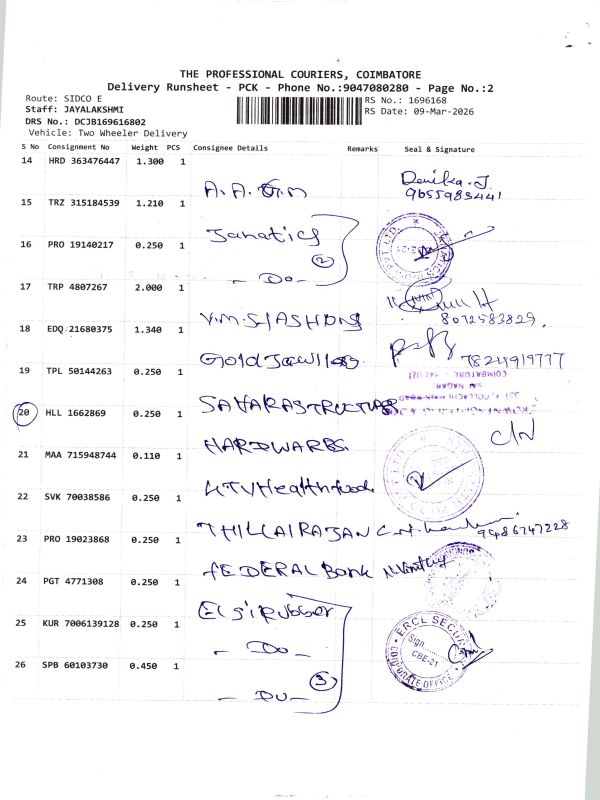 THE PROFESSIONAL COURIERS, COIMBATORE
Delivery Runsheet - PCK - Phone No.:9047080280 - Page No.:2
Route: SIDCO E
RS No.: 1696168
Staff: JAYALAKSHMI
RS Date: 09-Mar-2026
DRS No.: DCJB169616802
Vehicle: Two Wheeler Delivery
S No Consignment No Weight PCS Consignee Details Remarks Seal & Signature
14 HRD 363476447 1.300 1
A.A.
Devika.J.
9655983441
15 TRZ 315184539 1.210 1
Janatics
16 PRO 19140217 0.250 1
2
- Do -
17 TRP 4807267 2.000 1
V.M.S FASHIONS
8072583829.
18 EDQ 21680375 1.340 1
Gold Jewllers
7824919777
19 TPL 50144263 0.250 1
COIMBATORE - 641 021
SAI NAGAR
SAHARASTRUCTURES
20 HLL 1662869 0.250 1
C/N
HARDWARES
21 MAA 715948744 0.110 1
Healthfoods
22 SVK 70038586 0.250 1
THILLAIRAJAN
9486747228
23 PRO 19023868 0.250 1
FEDERAL Bank
24 PGT 4771308 0.250 1
Elgi rubber
25 KUR 7006139128 0.250 1
- Do -
ERCL SECURITY
Sign
CBE-21
CORPORATE OFFICE
26 SPB 60103730 0.450 1
3
- Do -